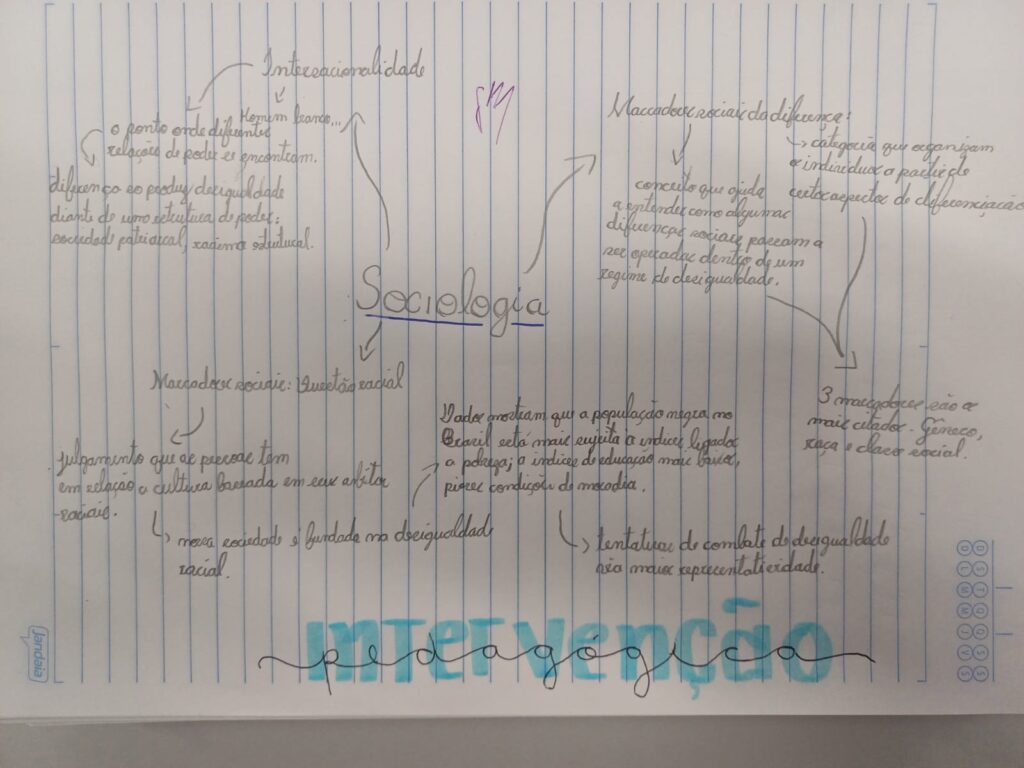 Interseccionalidade
Homem branco...
o ponto onde diferentes
relações de poder se encontram.
diferença se produz desigualdade
diante de uma estrutura de poder:
sociedade patriarcal, racismo estrutural.
Marcadores sociais da diferença:
categoria que organizam
o indivíduo a partir de
certos aspectos de diferenciação
conceito que ajuda
a entender como algumas
diferenças sociais passam a
ser operadas dentro de um
regime de desigualdade.
Sociologia
3 marcadores são os
mais citados. Gênero,
raça e classe social.
Marcadores sociais: Questão racial
julgamento que as pessoas têm
em relação a cultura baseada em seus
sociais.
nossa sociedade é fundada na desigualdade
racial.
Dados mostram que a população negra no
Brasil está mais sujeita a indices ligados
a pobreza; a indices de educação mais baixos,
piores condições de moradia.
tentativas de combate da desigualdade
maior representatividade.
intervenção
pedagógica
Jandaia
D S T Q Q S S
D L M M J V S